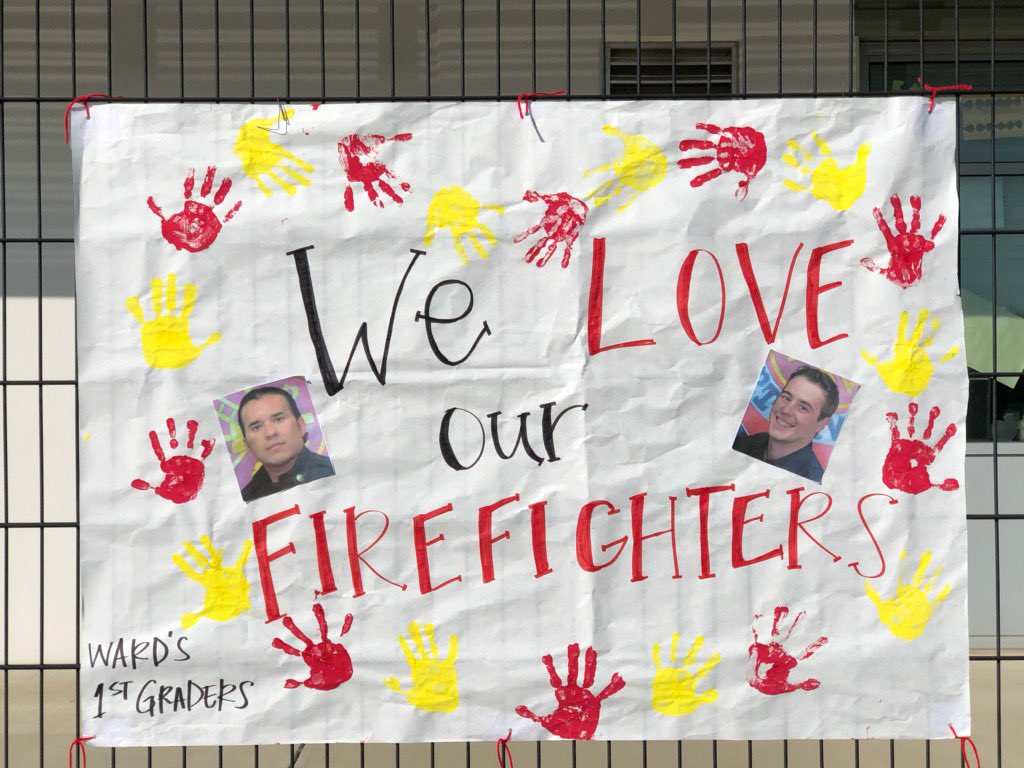 We LOVE
our
FIREFIGHTERS
WARD'S
1ST GRADERS